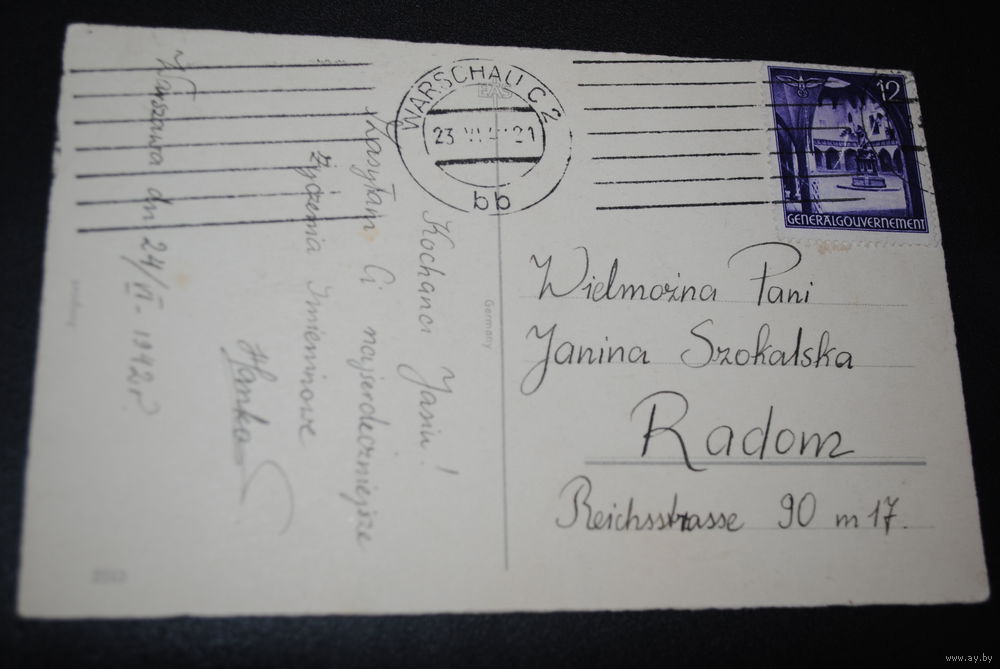 WARSCHAU C 2
23.VI. 21
bb
EAS
12
GENERALGOUVERNEMENT
Warszawa dn 24/VI - 1942 r.
Kochana Jasiu!
Zasyłam Ci najserdeczniejsze
życzenia Imieninowe
Hanka
Germany
Wielmożna Pani
Janina Szokalska
Radom
Reichsstrasse 90 m 17.
www.ay.by